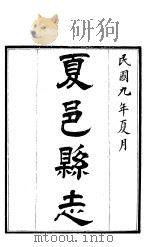 研狗
民國九年夏月
夏邑縣志
www.yangou8.com
mtoou.info